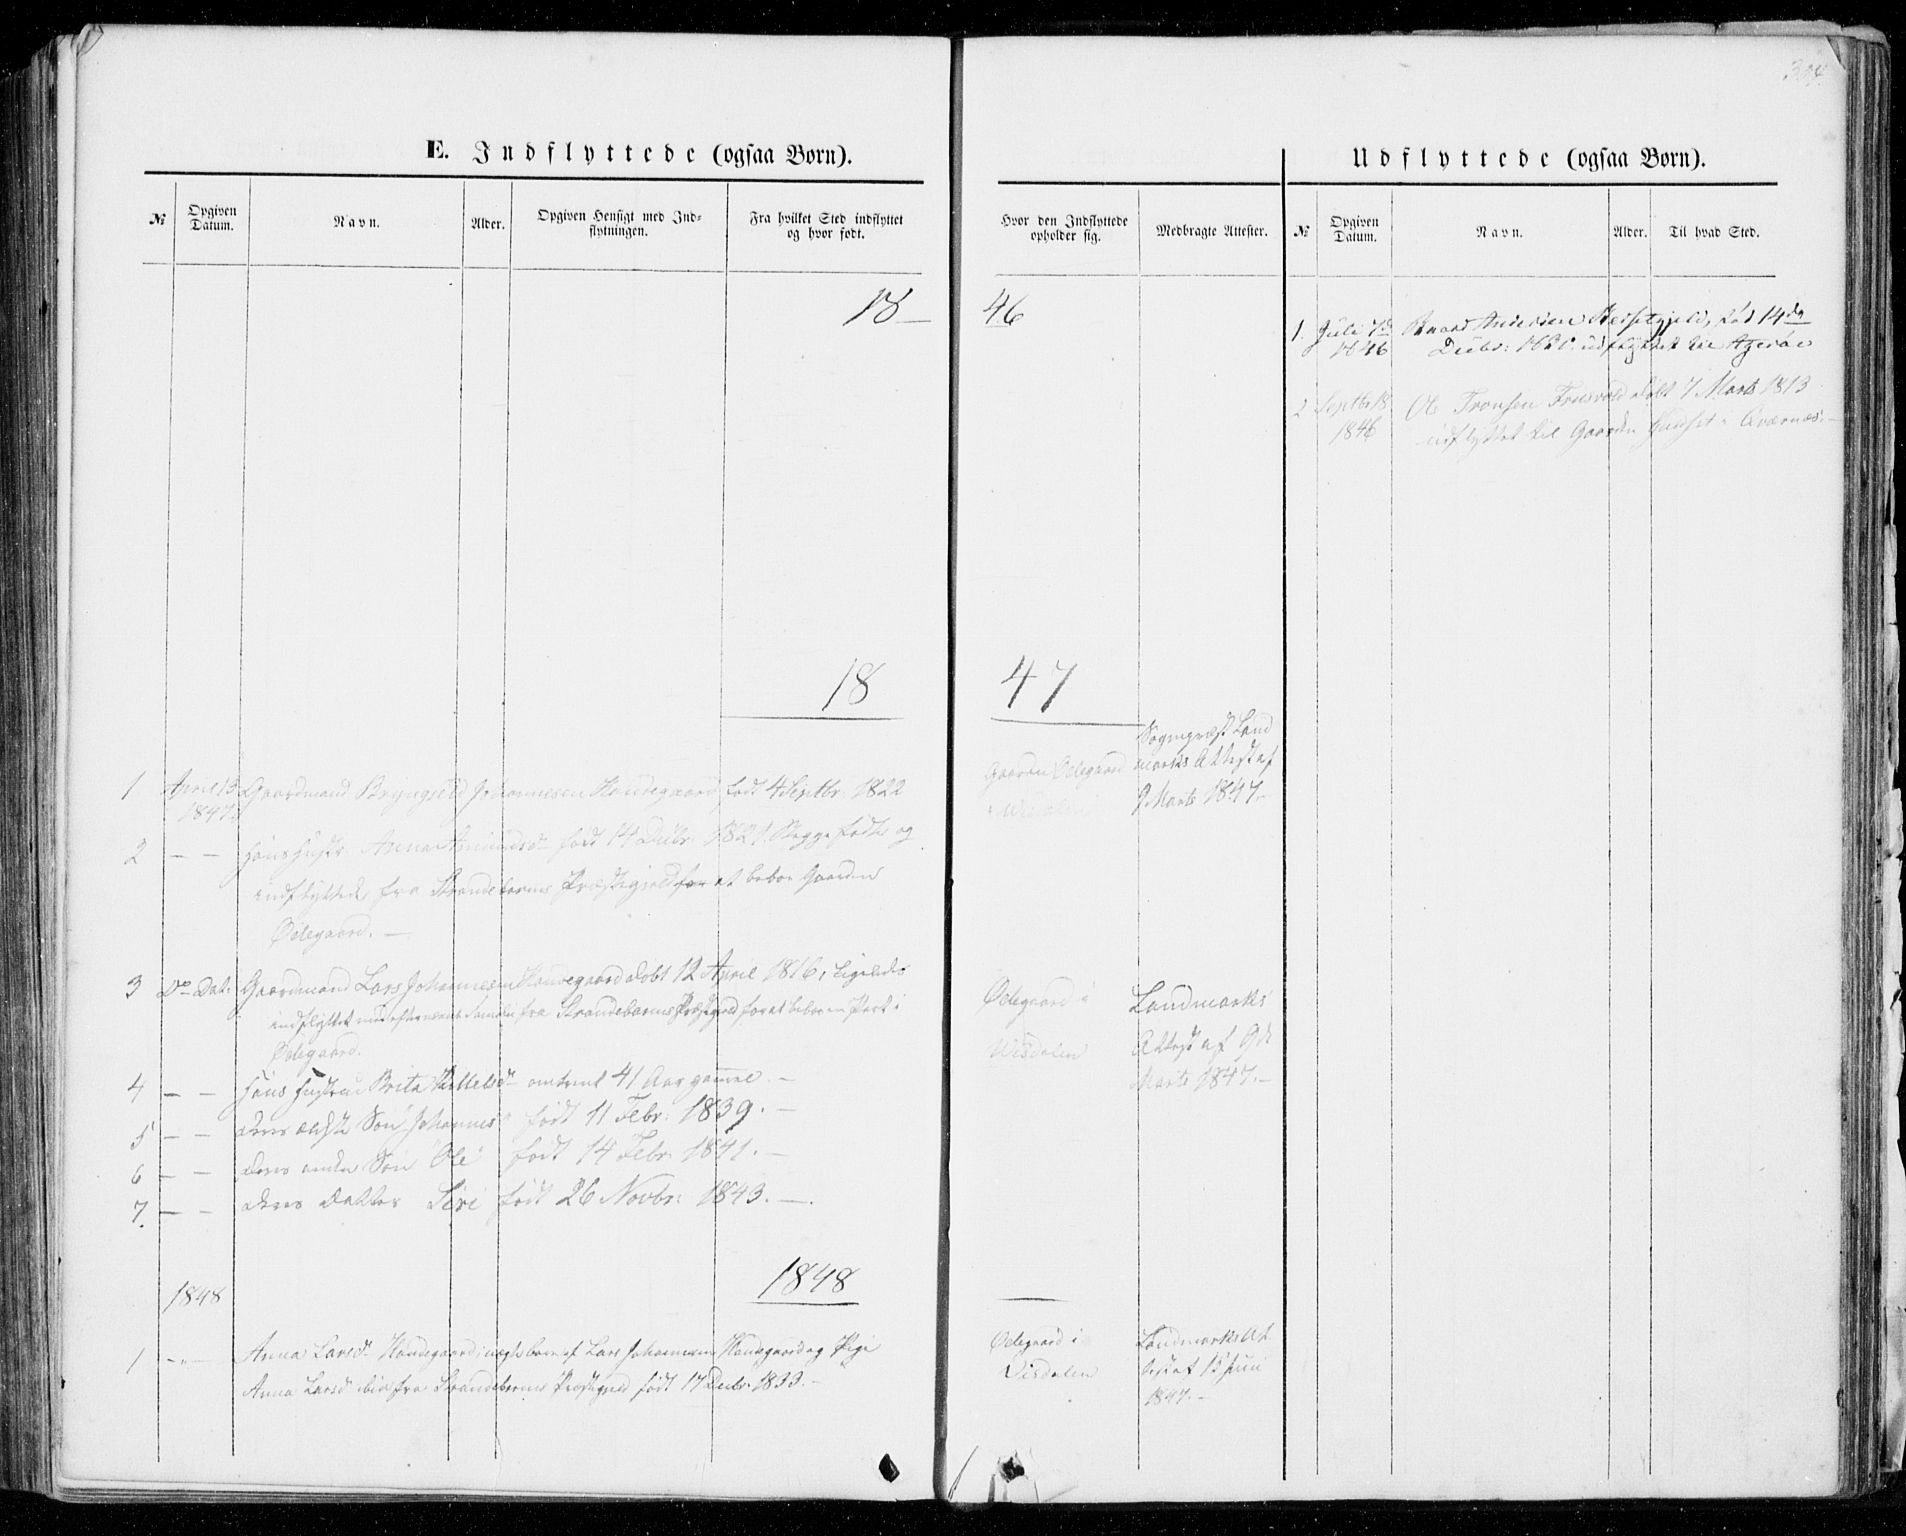 304
E. Indflyttede (ogsaa Børn).
№
Opgiven Datum.
Navn.
Alder.
Opgiven Hensigt med Indflytningen.
Fra hvilket Sted indflyttet og hvor født.
18
18
1 April 13 Gaardmand Johannesen Handegaard født 4 Septbr. 1822
1847.
2 — — Hans Hustr. Anna født 14 Decbr. 1821. Begge fødte og
indflyttede fra Strandebarms Præstegjeld for at beboe Gaarden
Ødegaard. —
3 Do Dat. Gaardmand Lars Johannesen Handegaard døbt 12 April 1816, Ligeledes
indflyttet med efternævnte Familie fra Strandebarms Præstegjeld for at beboe en Part i
Ødegaard.
4 — — Hans Hustrue Brita omtrent 41 Aar gammel. —
5 — — deres ældste Søn Johannes født 11 Febr: 1839. —
6 — — deres anden Søn Ole født 14 Febr. 1841. —
7. — — deres Datter Siri født 26 Novbr: 1843. —.
1848
1848
1 -"- Anna Larsd. Handegaard, uægte barn af Lars Johannesen Handegaard og Pige
Anna Larsd. ibid fra Strandebarms Præstegjeld født 17 Decbr. 1833. —
Udflyttede (ogsaa Børn).
Hvor den Indflyttede opholder sig.
Medbragte Attester.
№
Opgiven Datum.
Navn.
Alder.
Til hvad Sted.
46
1. Juli 7d Andersen fød 14da
1846 Decbr: udflyttet til
2 Septbr 18 Ole Tronsen døbt 7 Marts 1813
1846 udflyttet til Gaarden i Qværnæs. —
47
Sognepræst Land
Gaarden Ødegaard marks Attest af
i Wisdalen 9 Marts 1847. —
Ødegaard i Landmarks
Wisdalen Attest af 9de
Marts 1847. —
Ødegaard i Landmarks At
Visdalen test af 15 Juni
1847. —